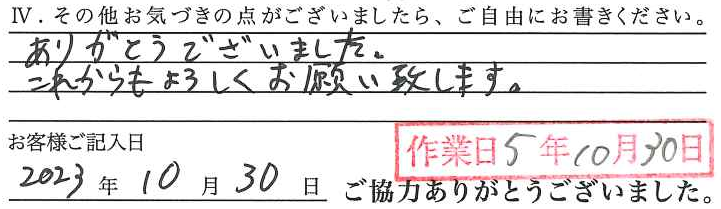 Ⅳ．その他お気づきの点がございましたら、ご自由にお書きください。
ありがとうございました。
これからもよろしくお願い致します。
お客様ご記入日
作業日5年10月30日
2023年10月30日
ご協力ありがとうございました。